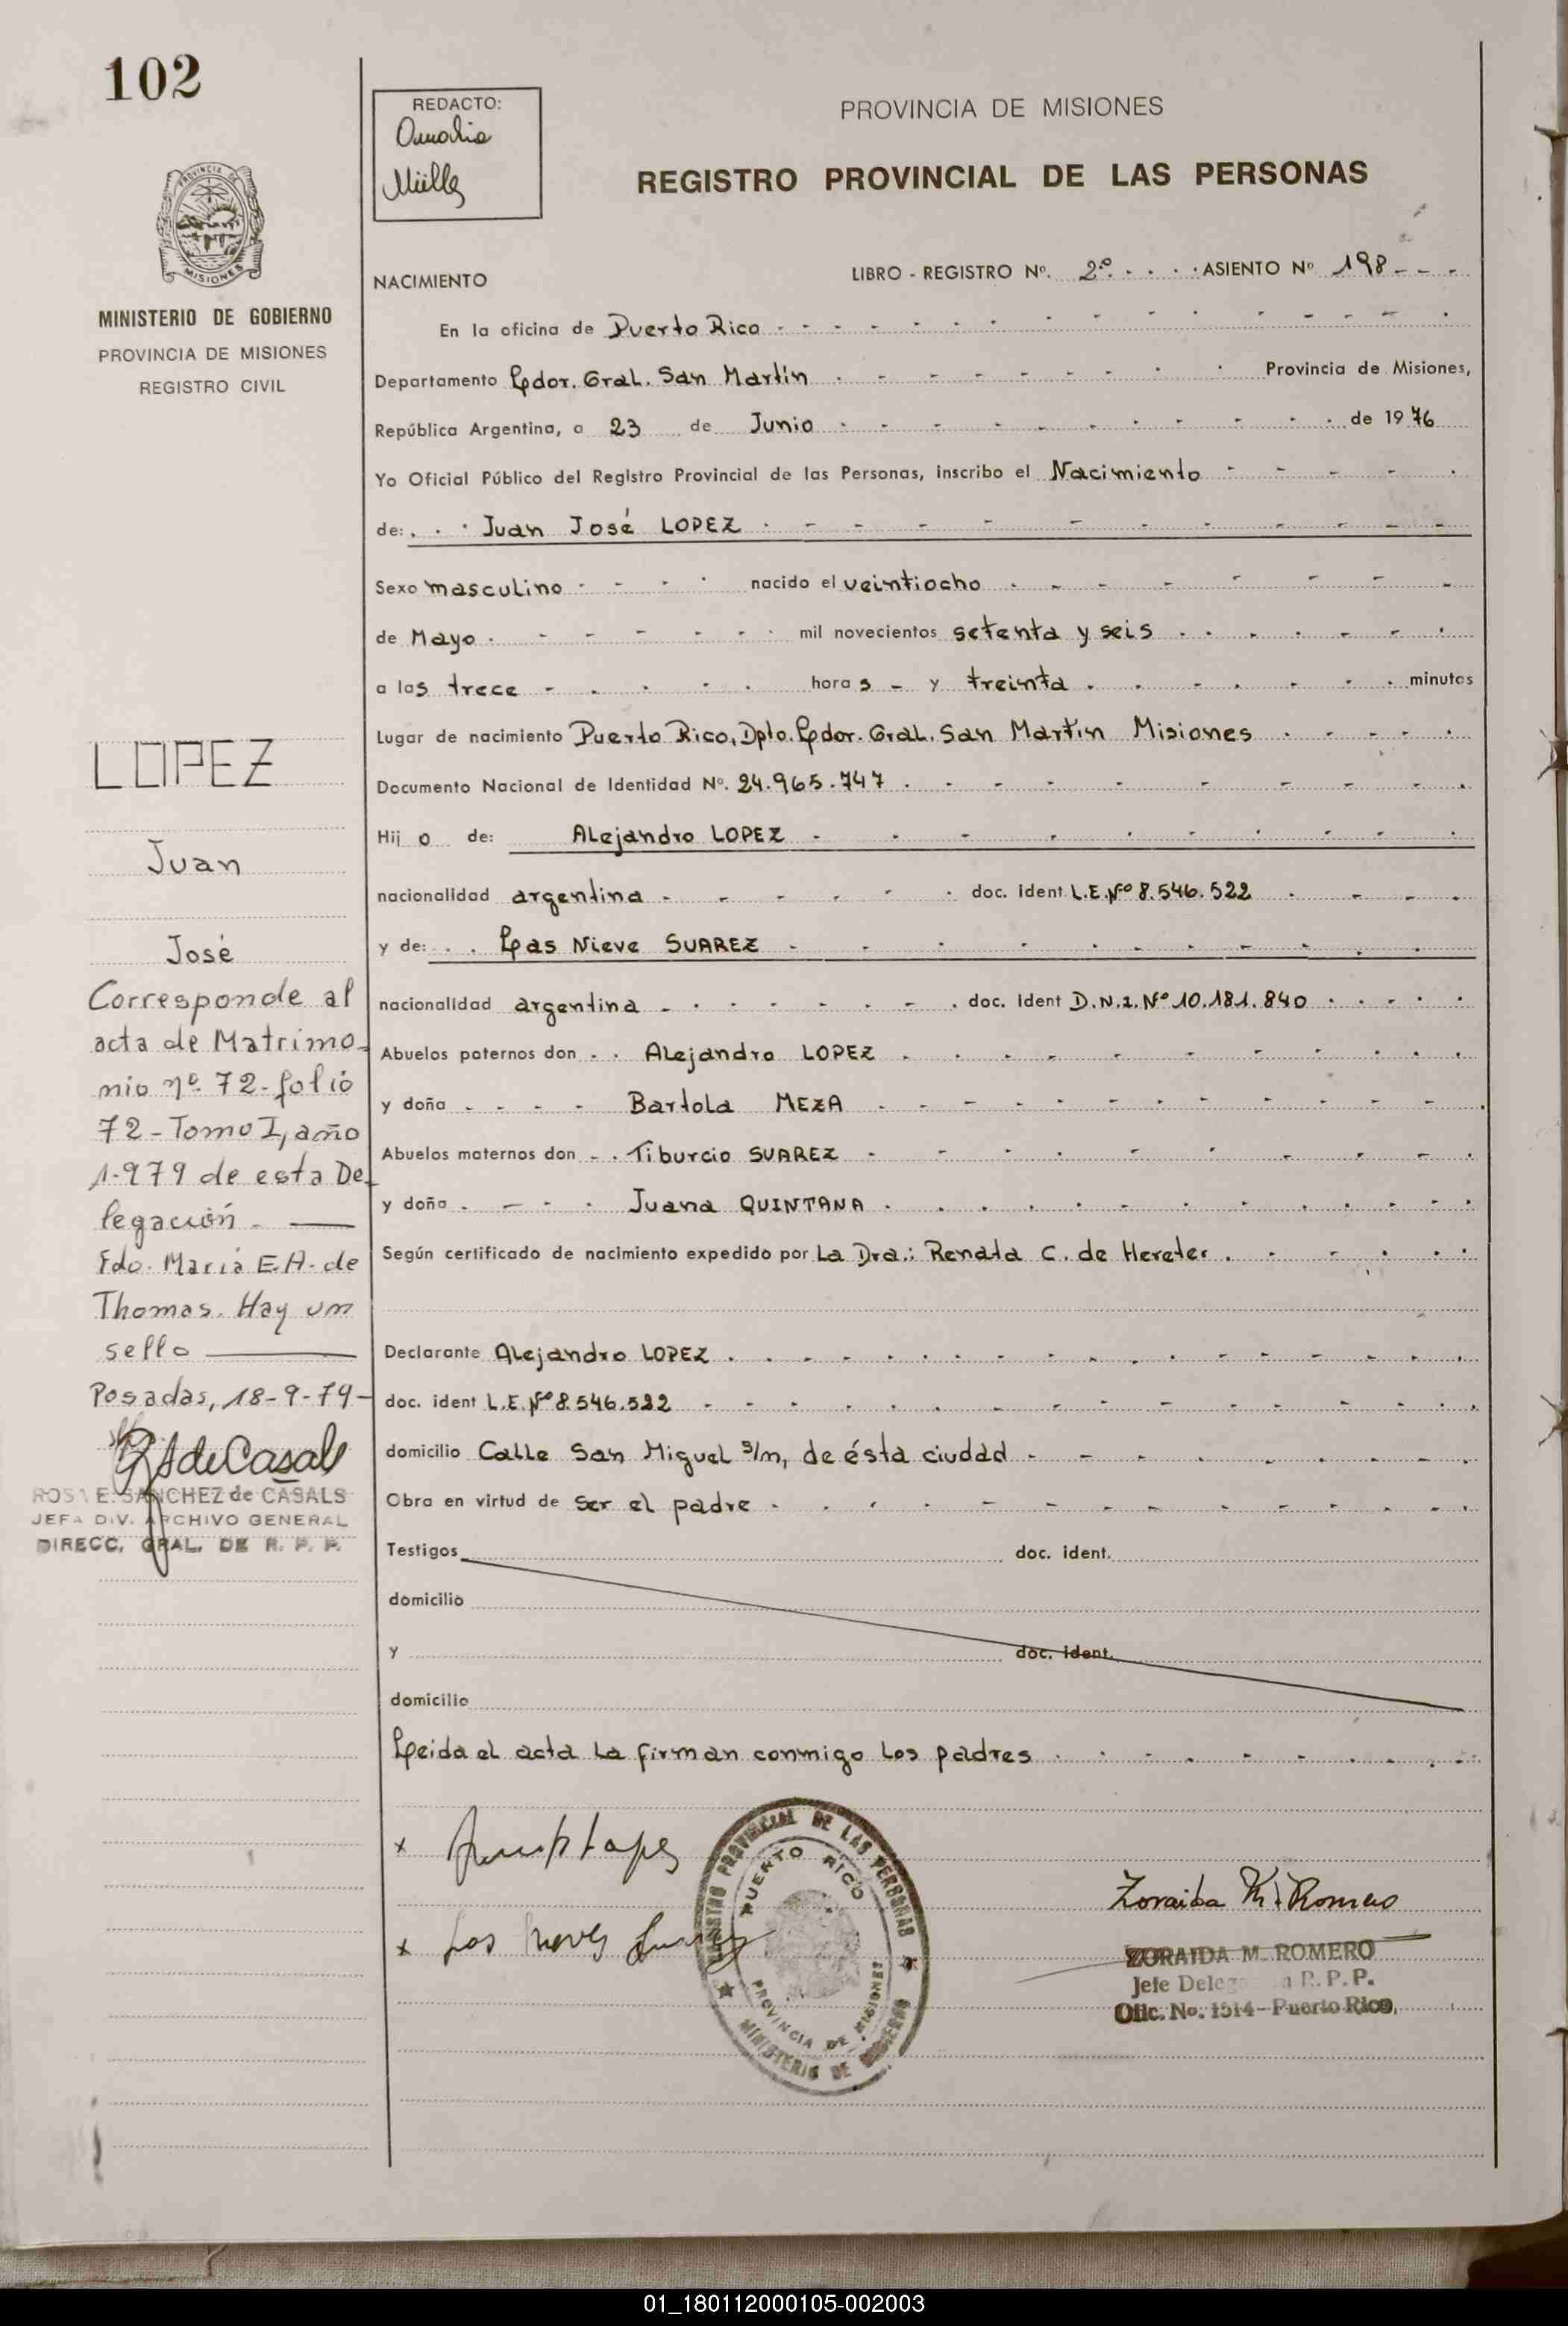 102
REDACTO:
Amalia
Müller
PROVINCIA DE MISIONES
REGISTRO PROVINCIAL DE LAS PERSONAS
PROVINCIA DE
MISIONES
MINISTERIO DE GOBIERNO
PROVINCIA DE MISIONES
REGISTRO CIVIL
NACIMIENTO LIBRO - REGISTRO Nº. 2º. ASIENTO Nº 198
En la oficina de Puerto Rico
Departamento Ldor. Gral. San Martín Provincia de Misiones,
República Argentina, a 23 de Junio de 1976
Yo Oficial Público del Registro Provincial de las Personas, inscribo el Nacimiento
de: Juan José LOPEZ
Sexo masculino nacido el veintiocho
de Mayo mil novecientos setenta y seis
a las trece horas y treinta minutos
Lugar de nacimiento Puerto Rico, Dpto. Ldor. Gral. San Martín Misiones
Documento Nacional de Identidad Nº. 24.965.747
Hijo de: Alejandro LOPEZ
nacionalidad argentina doc. ident L.E.Nº 8.546.522
y de: Las Nieve SUAREZ
nacionalidad argentina doc. ident D.N.I. Nº 10.181.840
Abuelos paternos don Alejandro LOPEZ
y doña Bartola MEZA
Abuelos maternos don Tiburcio SUAREZ
y doña Juana QUINTANA
Según certificado de nacimiento expedido por La Dra.: Renata C. de Hereter
Declarante Alejandro LOPEZ
doc. ident L.E.Nº 8.546.522
domicilio Calle San Miguel s/n, de ésta ciudad
Obra en virtud de ser el padre
Testigos doc. ident.
domicilio
y doc. ident.
domicilio
Leida el acta la firman conmigo los padres
LOPEZ
Juan
José
Corresponde al
acta de Matrimo-
nio nº 72-folio
72-Tomo I, año
1.979 de esta De-
legación.
Fdo. María E.A. de
Thomas. Hay un
sello
Posadas, 18-9-79-
RSdeCasals
ROSA E. SANCHEZ de CASALS
JEFA DIV. ARCHIVO GENERAL
DIRECC. GRAL. DE R. P. P.
x Lopez
x Las Nieves Suarez
REGISTRO PROVINCIAL DE LAS PERSONAS
PUERTO RICO
PROVINCIA DE MISIONES
MINISTERIO DE GOBIERNO
Zoraida M. Romero
ZORAIDA M. ROMERO
Jefe Delegación R.P.P.
Ofic. No. 1514-Puerto Rico
01_180112000105-002003